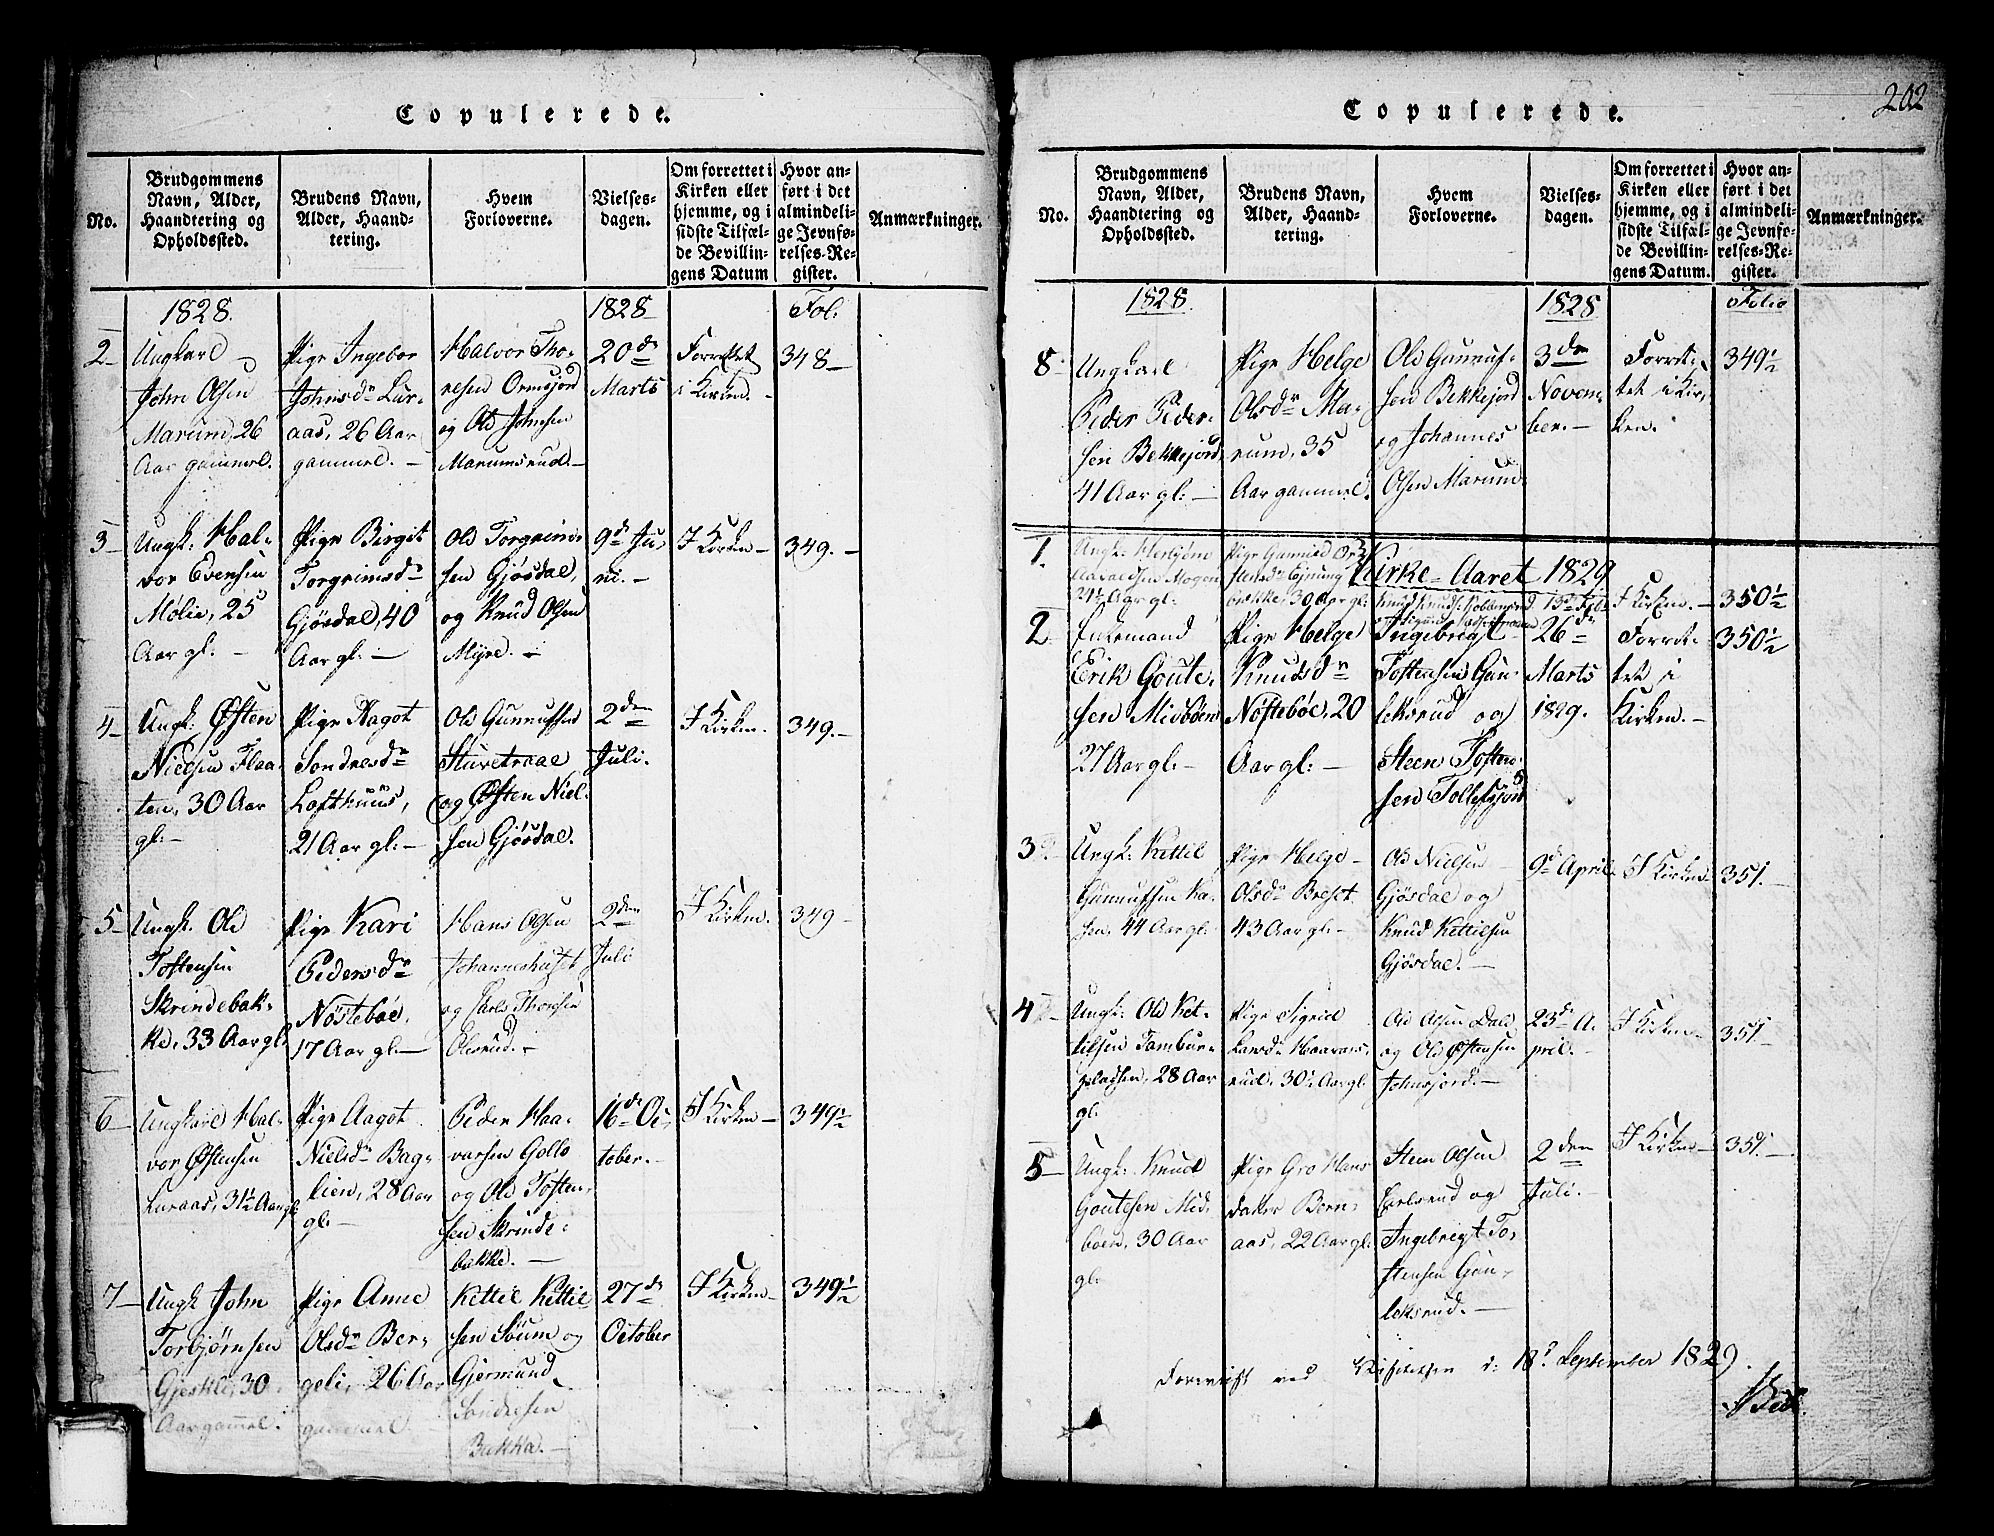 Copulerede.
No.
Brudgommens
Navn, Alder,
Haandtering og
Opholdssted.
Brudens Navn,
Alder, Haand-
tering.
Hvem
Forloverne.
Vielses-
dagen.
Om forrettet i
Kirken eller
hjemme, og i
sidste Tilfæl-
de Bevillin-
gens Datum
Hvor an-
ført i det
almindeli-
ge Jevnfø-
relses-Re-
gister.
Anmærkninger.
1828.
1828
Fol:
2
Ungkarl
John Olsen
Marum, 26
Aar gammel.
Pige Ingebor
Johnsdr Lur-
aas, 26 Aar
gammel. -
Halvor Tho-
resen Ormsjord
og Ole Johnsen
Marumsrud.
20de
Marts
Forrettet
i Kirken.
348
3
Ungk: Hal-
vor Evensen
Mølie, 25
Aar gl: -
Pige Birgit
Torgrimsdr
Gjøsdal, 40
Aar gl: -
Ole Torgrim-
sen Gjøsdal,
og Knud Olsen
Myre. -
9de Ju-
ni. -
I Kirken -
349. -
4
Ungk: Østen
Nielsen Flaa-
ten, 30 Aar
gl: -
Pige Aagot
Sondresdr
Lofthuus,
21 Aar gl: -
Ole Gunnufsen
Sturetraae
og Østen Niel-
sen Gjøsdal.
2den
Juli.
I Kirken.
349. -
5
Ungk. Ole
Tostensen
Skrindebak-
ke, 33 Aar gl.
Pige Kari
Pedersdr
Nøsteboe.
17 Aar gl: -
Hans Olsen
Johanneshuset
og Thoresen
2den
Juli
I Kirken.
349 -
6
Ungkarl Hal-
vor Østensen
Luraas, 31½ Aar gl
Pige Aagot
Nielsdr Bag-
lien, 28 Aar
gl: -
Peder Haa-
varsen Gollo
og Ole Tosten-
sen Skrinde-
bakke. -
16de Oc-
tober. -
I Kirken -
349½
7
Ungk John
Torbjørnsen
Gjeskli, 30
Aar gammel.
Pige Anne
Olsdr Ber-
geli, 26 Aar
gammel
Kettil Kettil-
sen Søum og
Gjermund
Sondresen
Bakka. -
27de
October
I Kirken -
349½
Copulerede.
202
No.
Brudgommens
Navn, Alder,
Haandtering og
Opholdssted.
Brudens Navn,
Alder, Haand-
tering.
Hvem
Forloverne.
Vielses-
dagen.
Om forrettet i
Kirken eller
hjemme, og i
sidste Tilfæl-
de Bevillin-
gens Datum.
Hvor an-
ført i det
almindeli-
ge Jevnfø-
relses-Re-
gister.
Anmærkninger.
1828.
1828
Folio
8
Ungkarl
Peder Peder-
sen Bekkejord,
41 Aar gl: -
Pige Helge
Olsdr Ma-
rum, 35
Aar gammel.
Ole Gunnuf-
sen Bekkejord
og Johannes
Olsen Marum
3den
Novem-
ber. -
Forret-
tet i Kir-
ken.
349½
Kirke-Aaret 1829
1.
Ungk: Herbjørn
Mogen
24½ Aar gl:
Pige Gunnild
Ejnung
brække, 30 Aar gl:
Knud Knuds:
13de Feb:
I Kirken. -
350½
2
Enkemand
Erik Goute-
sen Midbøen
27 Aar gl: -
Pige Helge
Knudsdr
Nøsteboe, 20
Aar gl: -
Ingebrigt
Tostensen Gun-
leksrud og
Steen Tosten-
sen Tollefsjord
26de
Marts
1829.
Forret-
tet i
Kirken. -
350½
3
Ungk: Kettil
Gunnufsen Ka-
sen, 44 Aar gl:
Pige Helge
Olsdr Breset
43 Aar gl: -
Ole Nielsen
Gjøsdal og
Knud Kettilsen
Gjøsdal. -
9de April
I Kirken
351. -
4
Ungk: Ole Ket-
tilsen Tambur-
pladsen, 28 Aar
gl:
Pige Sigrid
Larsdr Haavars-
rud, 30½ Aar gl:
Ole Olsen Dale
og Ole Østensen
Johnsjord. -
23de A-
pril. -
I Kirken -
351.
5
Ungk: Knud
Goutesen Mid-
bøen, 30 Aar
gl:
Pige Gro Hans
datter Bern-
aas, 22 Aar gl:
Steen Olsen
Carlsrud og
Ingebrigt To-
stensen Gun-
leksrud. -
2den
Juli. -
I Kirken -
351. -
Foreviist ved Visitatsen d: 18de September 1829.